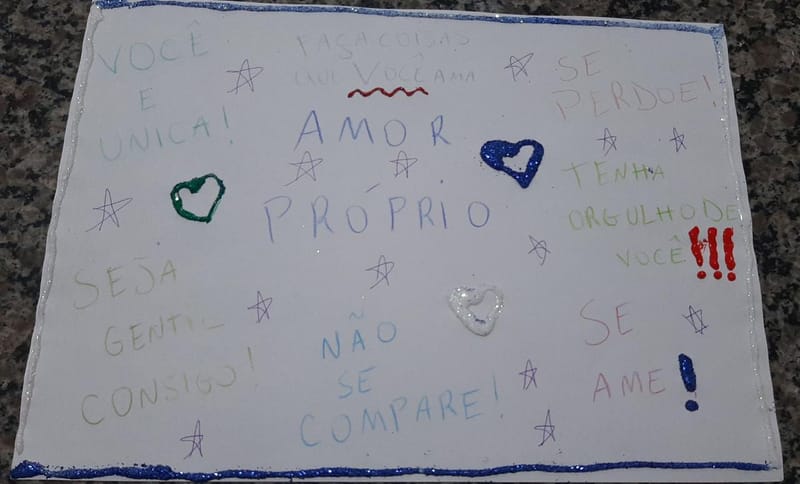 VOCÊ
E
UNICA!
FAÇA COISAS
QUE VOCÊ AMA
SE
PERDOE!
AMOR
PRÓPRIO
TENHA
ORGULHO DE
VOCÊ!!!
SEJA
GENTIL
CONSIGO!
NÃO
SE
COMPARE!
SE
AME!